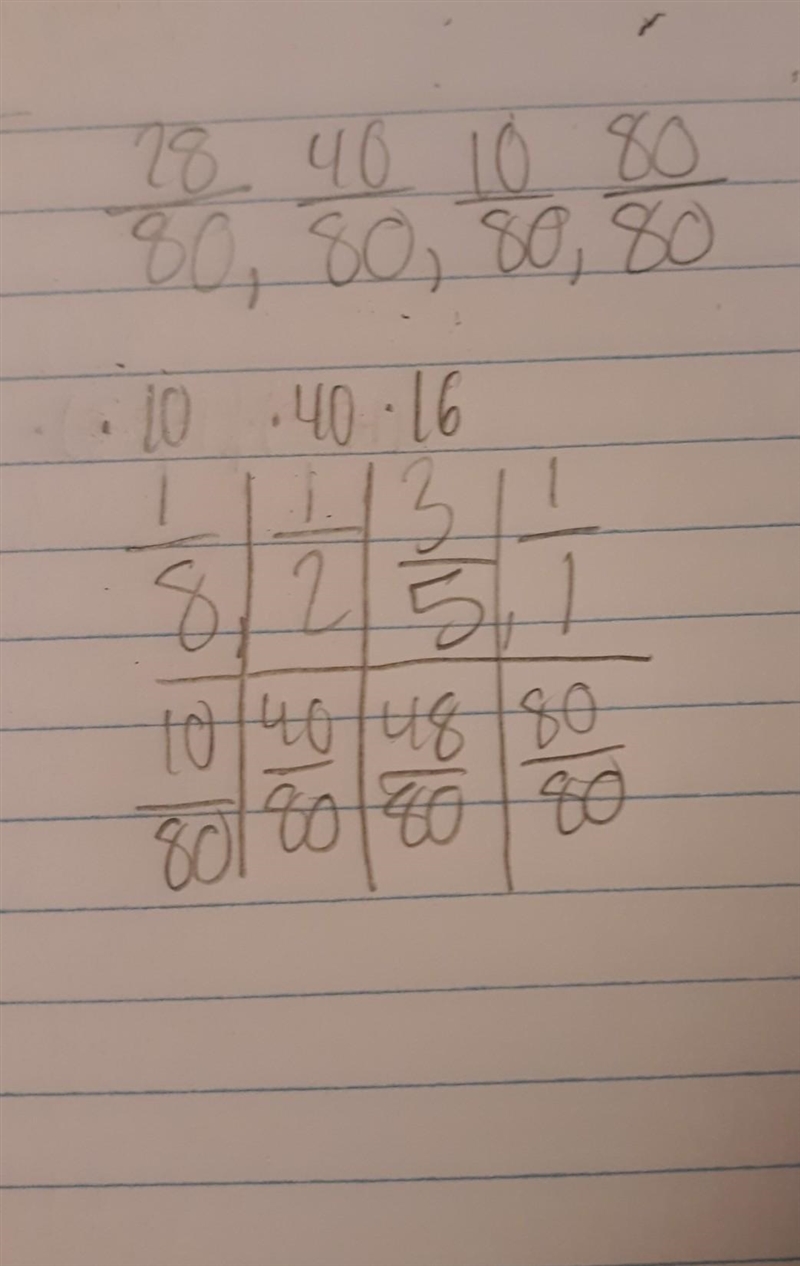 28/80, 40/80, 10/80, 80/80
·10 ·40 ·16
1/8, 1/2 3/5, 1/1
10/80 40/80 48/80 80/80